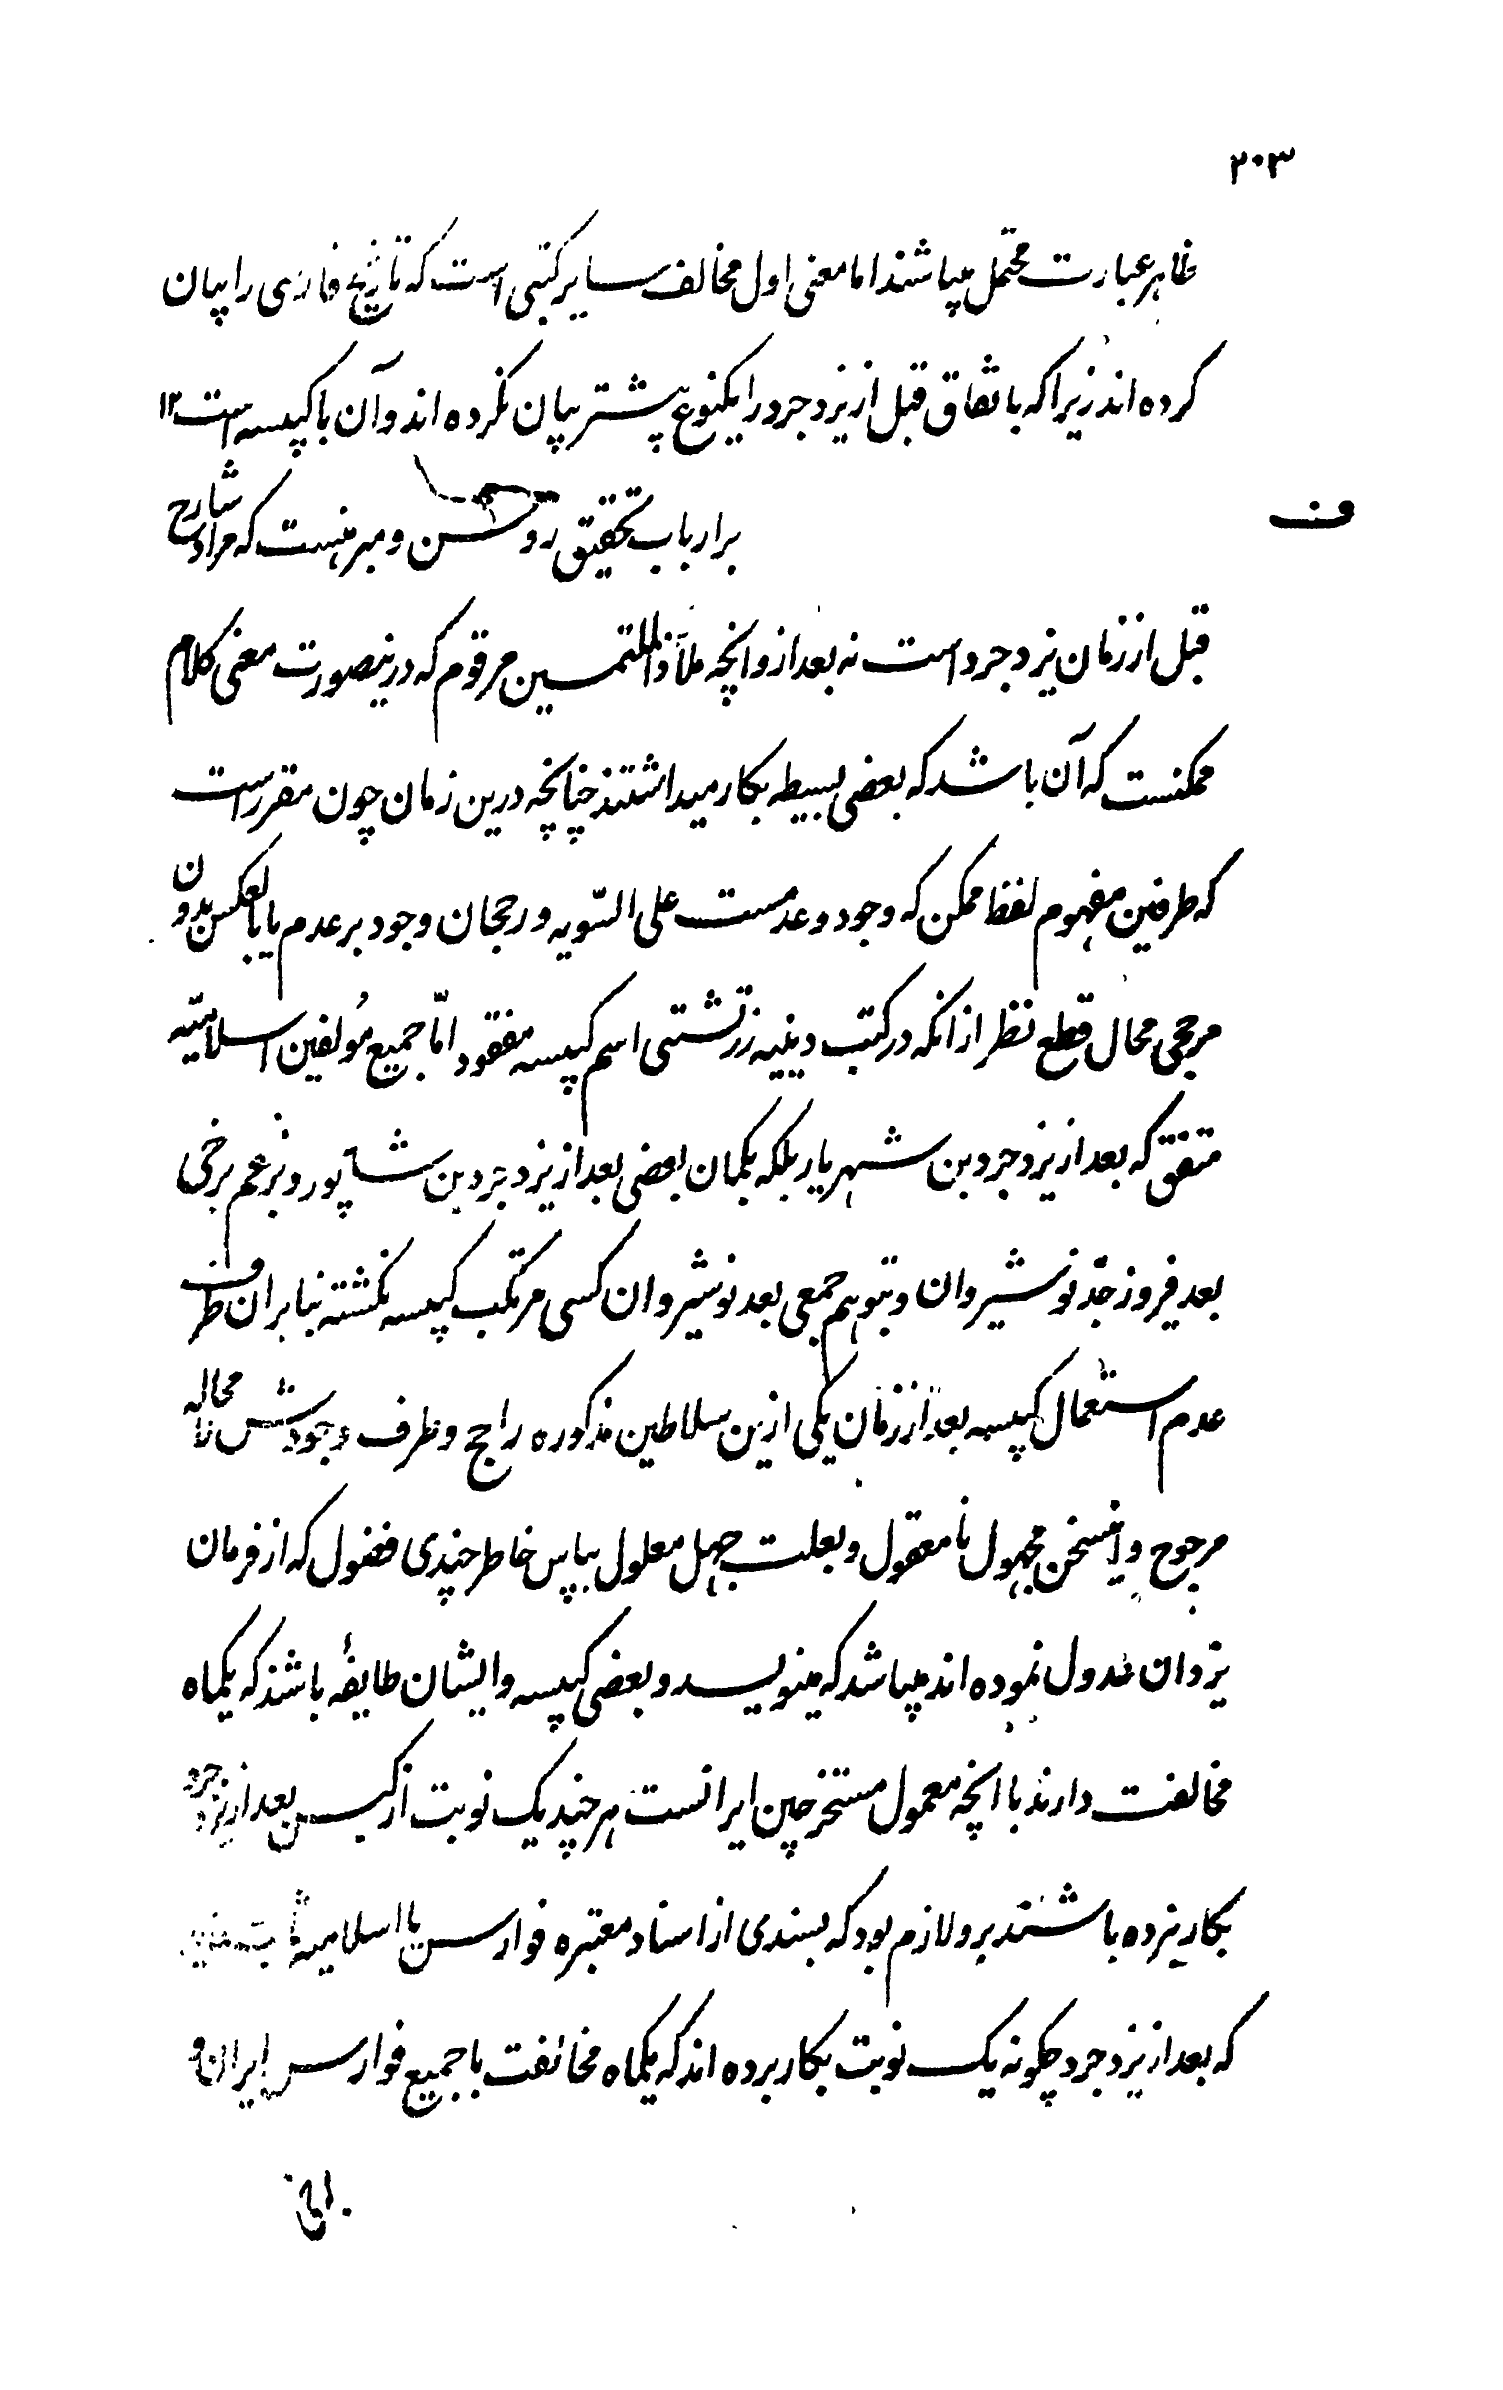 ۲۰۳
ظاهر عبارت محتمل میباشند اما معنی اول مخالف سایر کتبی است که تاریخ فارسی را بیان
کرده اند زیرا که باتفاق قبل از یزدجرد را یکنوع پیشتر بیان نکرده اند و آن با کبیسه است ۱۲
ف
بر ارباب تحقیق روشن و مبرهنست که مراد شارح
قبل از زمان یزدجرد است نه بعد ازو انچه ملاذ الملتمسین مرقوم که درینصورت معنی کلام
ممکنست که آن باشد که بعضی بسیطه بکار میداشتند چنانچه درین زمان چون مقرر است
که طرفین مفهوم لفظ ممکن که وجود و عدمست علی السّویه و رجحان وجود بر عدم یا بالعکس بدون
مرجحی محال قطع نظر از انکه در کتب دینیه زرتشتی اسم کبیسه مفقود امّا جمیع مؤلفین اسلامیّه
متفق که بعد از یزدجرد بن شهریار بلکه بگمان بعضی بعد از یزدجرد بن شاپور و بزعم برخی
بعد فیروز جدّ نوشیروان و بتوهم جمعی بعد نوشیروان کسی مرتکب کبیسه نگشته بنابران طرف
عدم استعمال کبیسه بعد از زمان یکی ازین سلاطین مذکوره راجح و طرف وجودش لا محاله
مرجوح و اینسخن مجهول نامعقول و بعلت جهل معلول بپاس خاطر چندی فضول که از فرمان
یزدان عدول نموده اند میباشد که مینویسد و بعضی کبیسه و ایشان طایفهٔ باشند که یکماه
مخالفت دارند با انچه معمول مستخرجین ایرانست هر چند یک نوبت از کبس بعد از یزدجرد
بکار برده باشند برو لازم بود که بسندی از اسناد معتبره فوارس یا اسلامیه
که بعد از یزدجرد چگونه یک نوبت بکار برده اند که یکماه مخالفت با جمیع فوارس ایران و